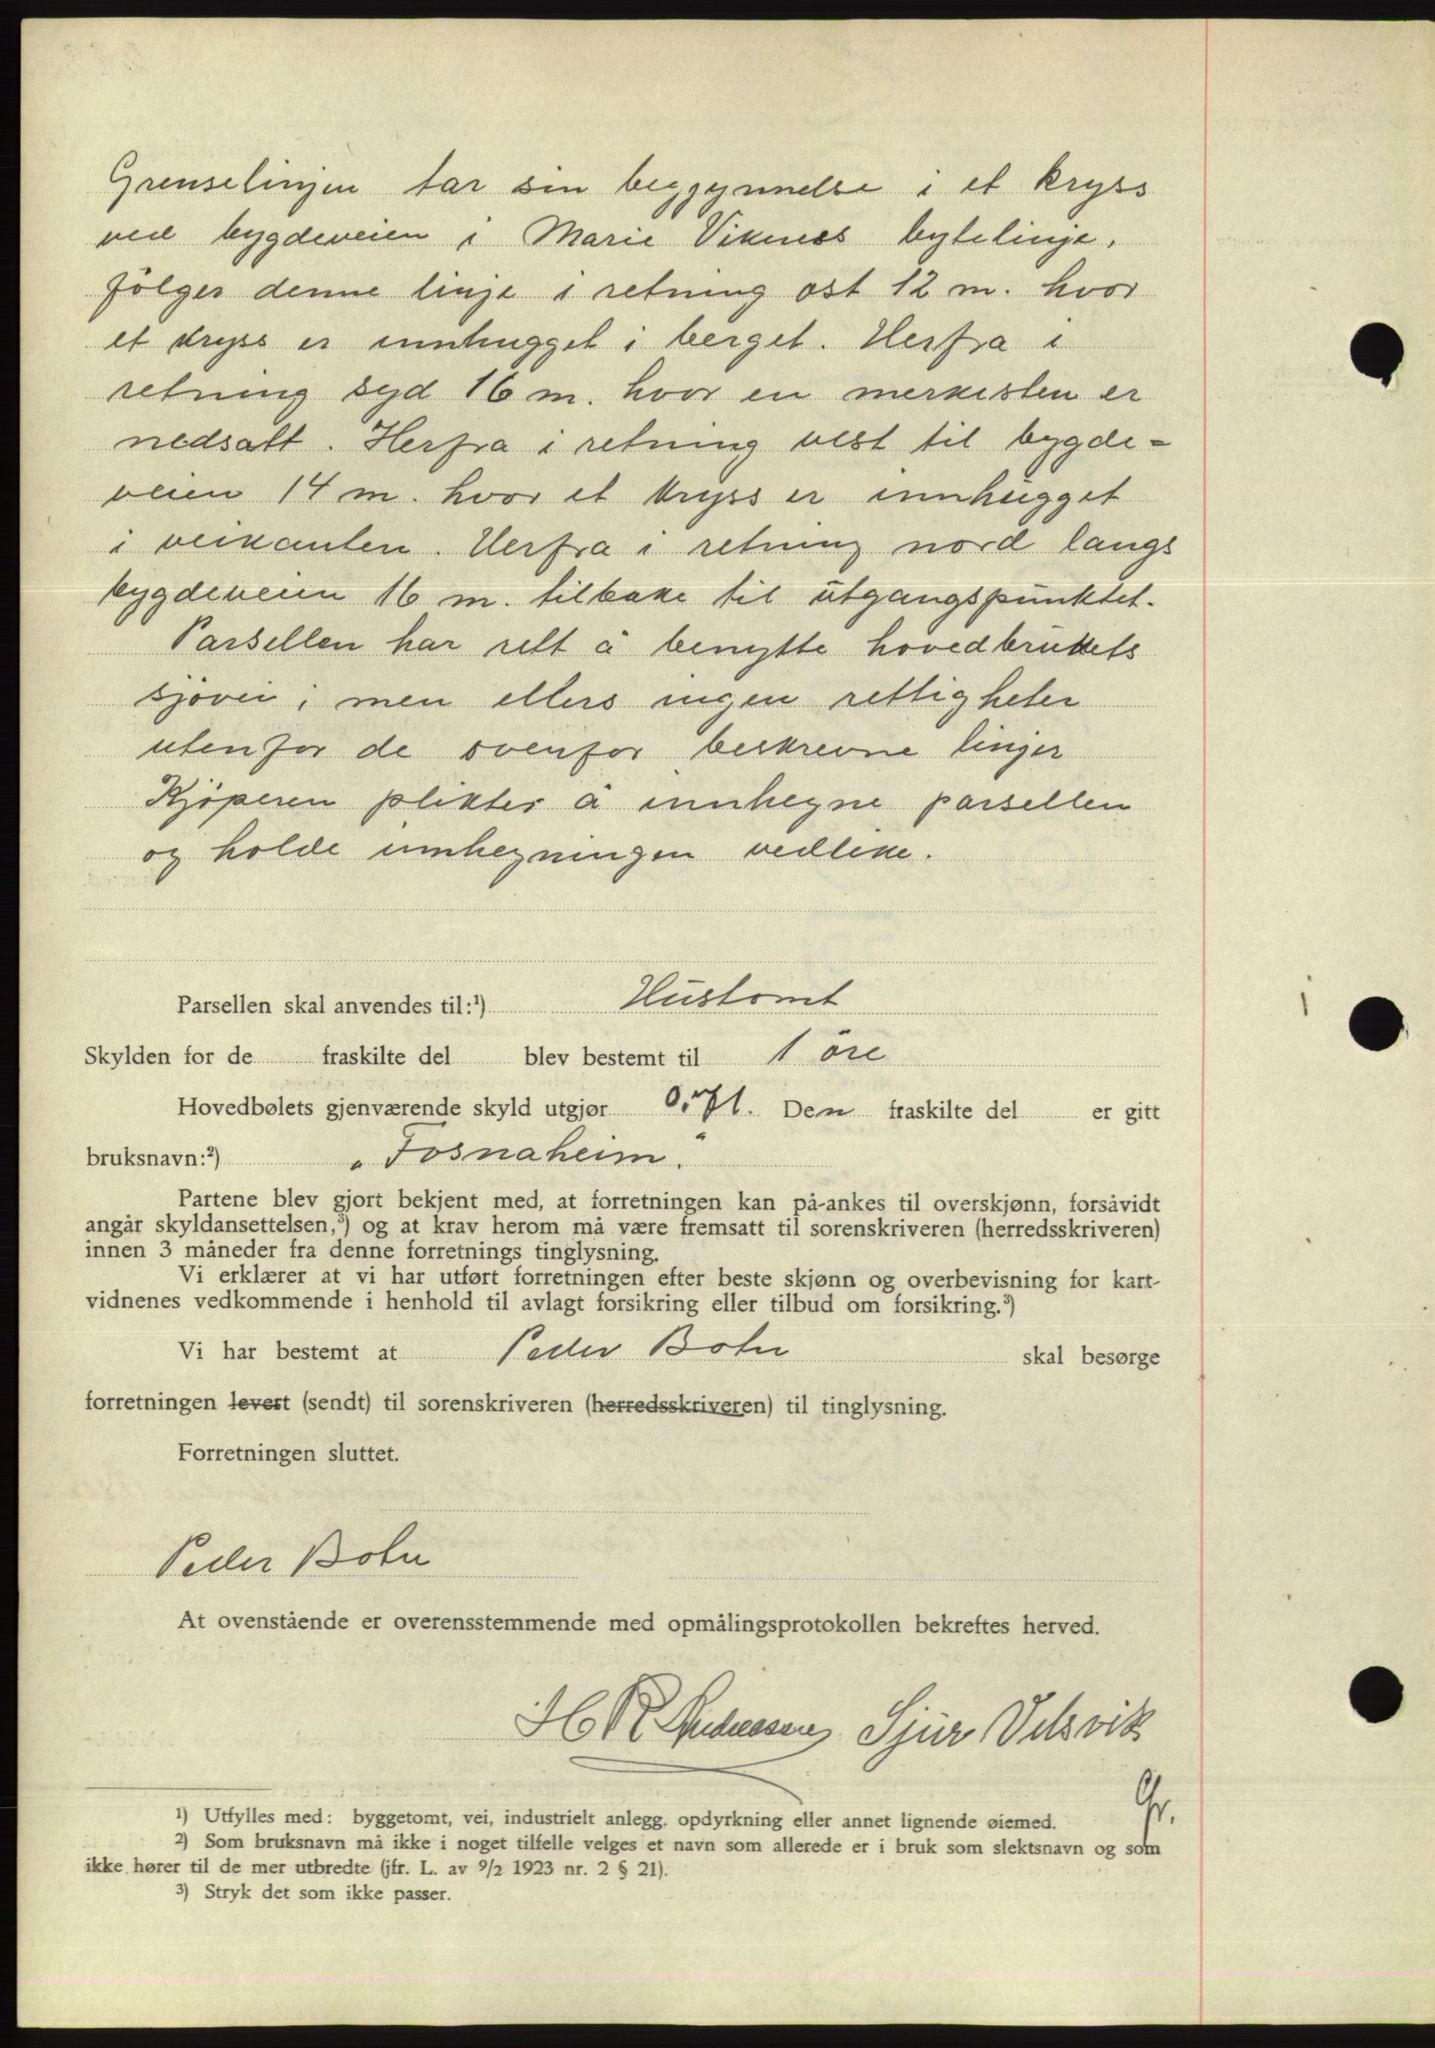 Grenselinjen tar sin beggynnelse i et kryss
ved bygdeveien i Marie Viknes bytelinje,
følger denne linje i retning øst 12 m. hvor
et kryss er innhugget i berget. Herfra i
retning syd 16 m. hvor en merkesten er
nedsatt. Herfra i retning vest til bygde-
veien 14 m. hvor et kryss er innhugget
i veikanten. Herfra i retning nord langs
bygdeveien 16 m. tilbake til utgangspunktet.
Parsellen har rett å benytte hovedbrukets
sjøvei, men ellers ingen rettigheter
utenfor de ovenfor beskrevne linjer
Kjøperen plikter å innhegne parsellen
og holde innhegningen vedlike.
Parsellen skal anvendes til:¹) Hustomt
Skylden for de fraskilte del blev bestemt til 1 øre
Hovedbølets gjenværende skyld utgjør 0,71. Den fraskilte del er gitt
bruksnavn:²) „Fosnaheim."
Partene blev gjort bekjent med, at forretningen kan på-ankes til overskjønn, forsåvidt
angår skyldansettelsen,³) og at krav herom må være fremsatt til sorenskriveren (herredsskriveren)
innen 3 måneder fra denne forretnings tinglysning.
Vi erklærer at vi har utført forretningen efter beste skjønn og overbevisning for kart-
vidnenes vedkommende i henhold til avlagt forsikring eller tilbud om forsikring.³)
Vi har bestemt at Peder Botn skal besørge
forretningen levert (sendt) til sorenskriveren (herredsskriveren) til tinglysning.
Forretningen sluttet.
Peder Botn
At ovenstående er overensstemmende med opmålingsprotokollen bekreftes herved.
H R Andreassen Sjur Vilsvik
Gr.
¹) Utfylles med: byggetomt, vei, industrielt anlegg. opdyrkning eller annet lignende øiemed.
²) Som bruksnavn må ikke i noget tilfelle velges et navn som allerede er i bruk som slektsnavn og som
ikke hører til de mer utbredte (jfr. L. av 9/2 1923 nr. 2 § 21).
³) Stryk det som ikke passer.